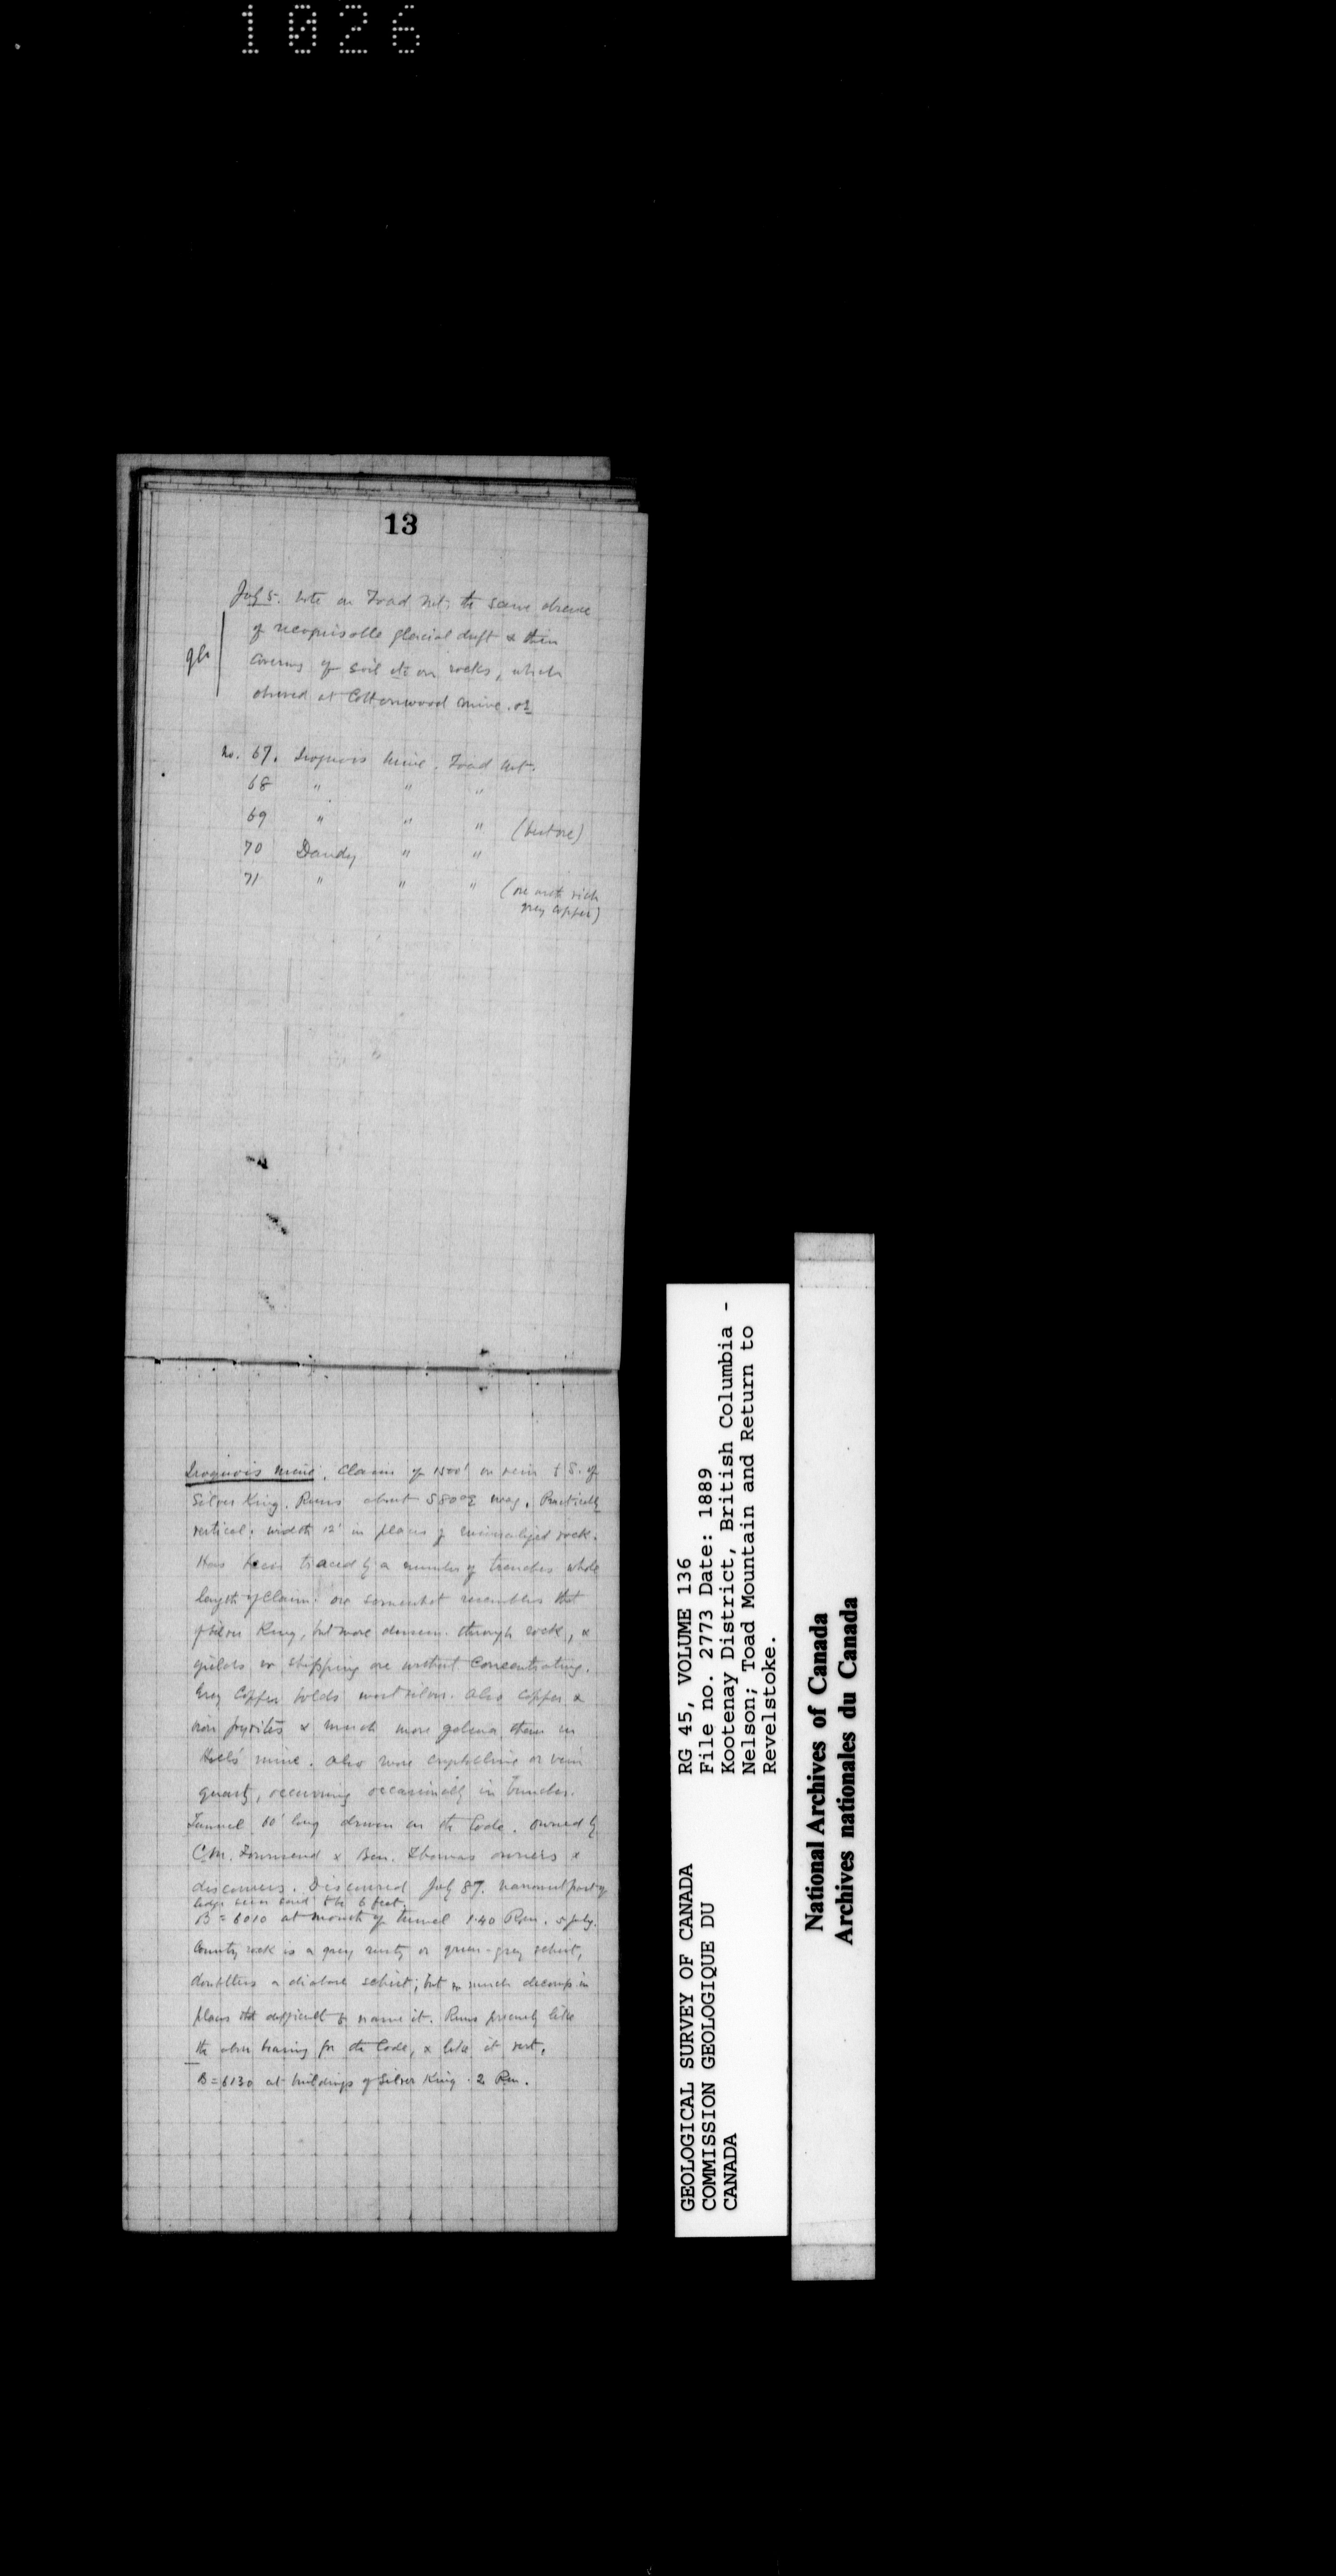 1026
13
July 5. Note on Toad Mt. the same absence
of recognisable glacial drift & thin
covering of soil etc on rocks, which
observed at Cottonwood mine. etc
gl
No. 67. Iroquois Mine. Toad Mt.
68 " " "
69 " " " (best ore)
70 Dandy " "
71 " " " (ore with rich
grey copper)
Iroquois Mine. Claim of 1500' on vein S. of
Silver King. Runs about S 80° E mag. Practically
vertical. width 12' in places of mineralized rock.
Has been traced by a number of trenches whole
length of claim. ore somewhat resembles that
of Silver King, but more dissem. through rock, &
yields no shipping ore without concentrating.
Grey Copper holds most silver. Also copper &
iron pyrites & much more galena than in
mine. Also more crystalline or vein
quartz, occurring occasionally in bunches.
Tunnel 60' long driven on the lode. Owned by
C.M. Townsend & Ben. Thomas owners &
discoverers. Discovered July 87. narrowest part of
lode seen said to be 6 feet.
B = 6010 at mouth of tunnel 1.40 P.m. 5 July.
Country rock is a grey rusty or green-grey schist,
doubtless a diabase schist; but so much decomp in
places that difficult to name it. Runs precisely like
the above bearing for the lode, & like it vert.
B = 6130 at buildings of Silver King. 2 P.m.
GEOLOGICAL SURVEY OF CANADA
COMMISSION GEOLOGIQUE DU
CANADA
RG 45, VOLUME 136
File no. 2773 Date: 1889
Kootenay District, British Columbia -
Nelson; Toad Mountain and Return to
Revelstoke.
National Archives of Canada
Archives nationales du Canada